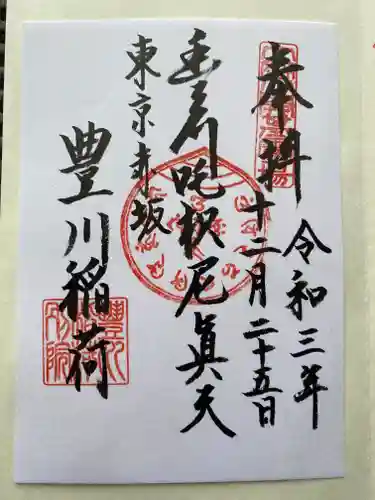 奉拝
令和三年
十二月二十五日
豊川吒枳尼眞天
東京赤坂
豊川稲荷